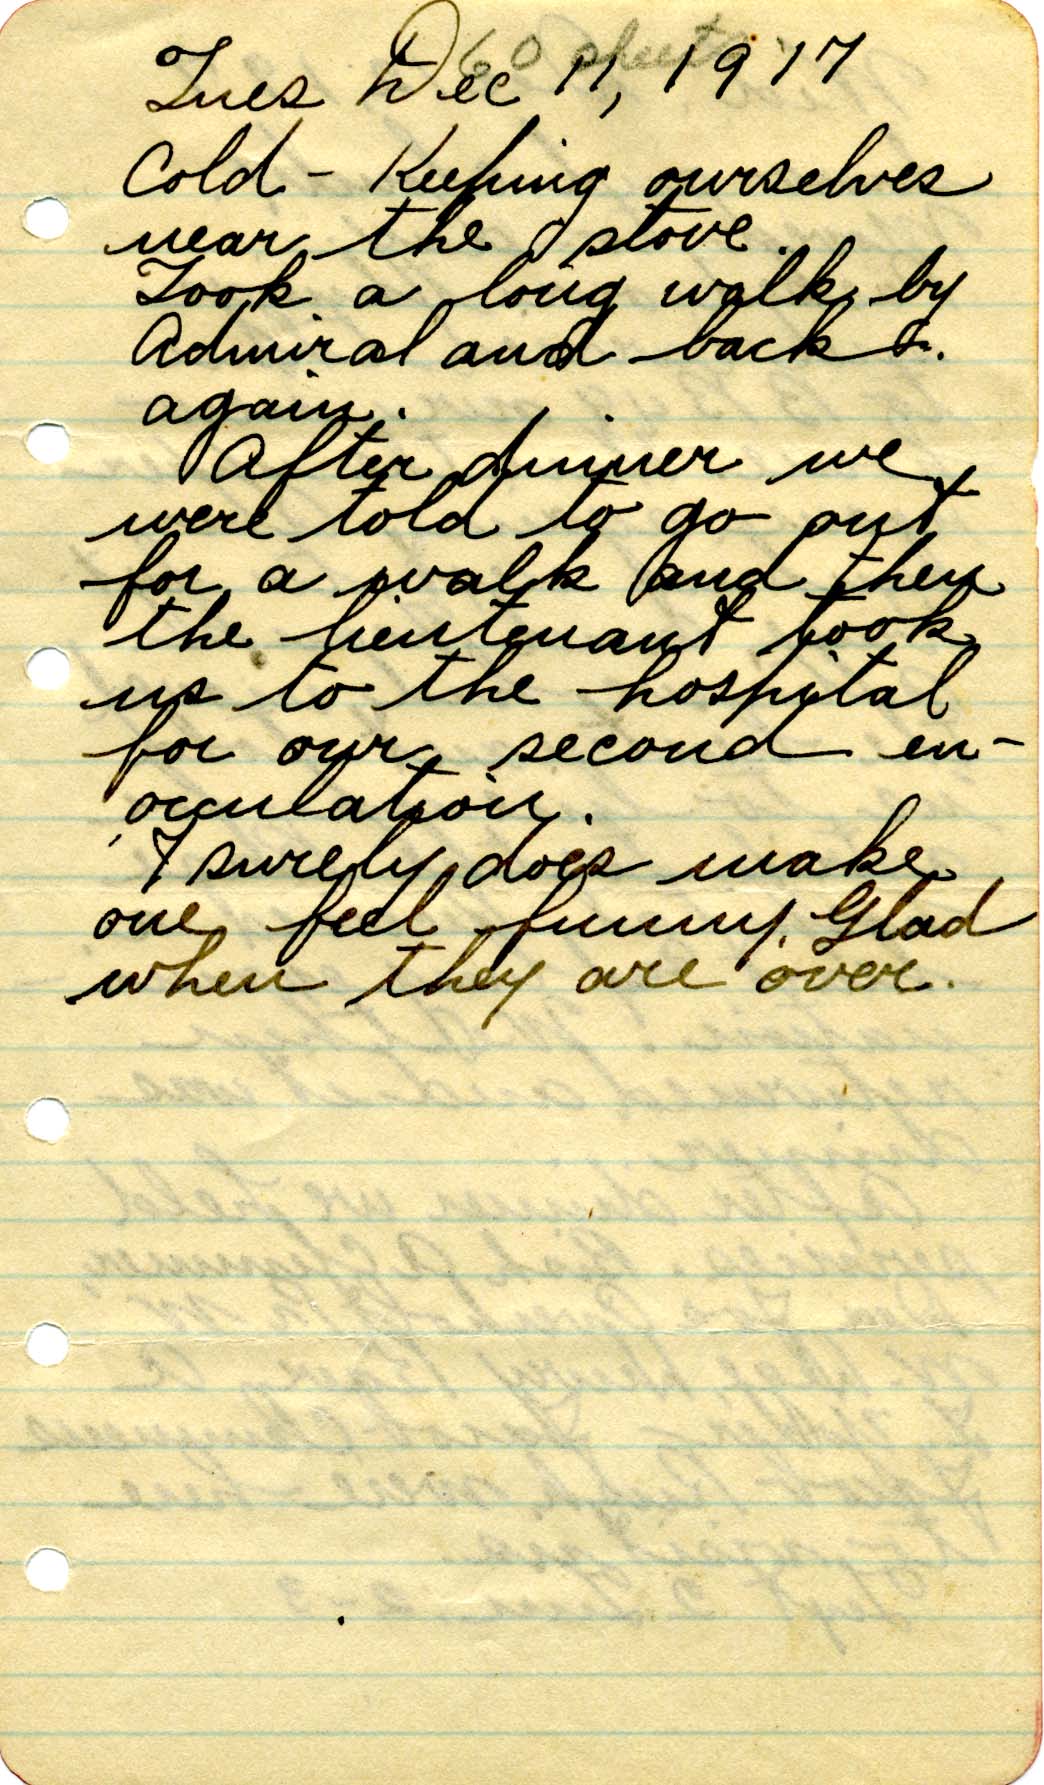 60 sheets
Tues Dec 11, 1917
Cold - Keeping ourselves
near the stove.
Took a long walk by
Admiral and back
again.
After dinner we
were told to go out
for a walk and then
the lieutenant took
us to the hospital
for our second en-
occulation.
I surely does make
one feel funny. Glad
when they are over.